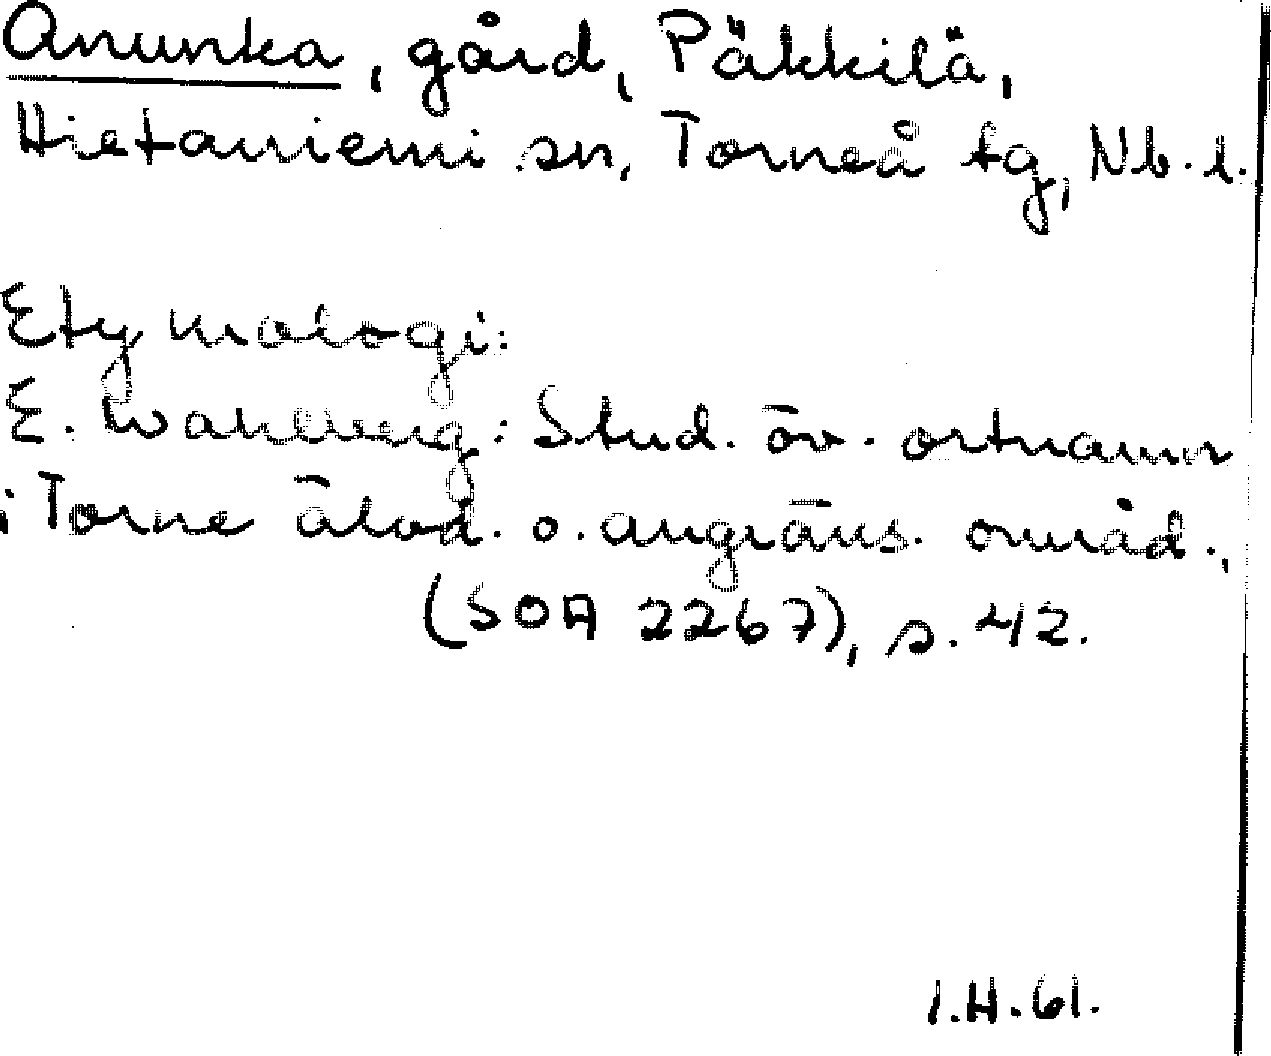 Anunka, gård, Päkkilä,
Hietaniemi sn, Torneå tg, Nb. l.
Etymologi:
E. Wahlberg: Stud. öv. ortnamn
i Torne älvd. o. angräns. områd.,
(SOA 2267), s. 42.
I.H.61.